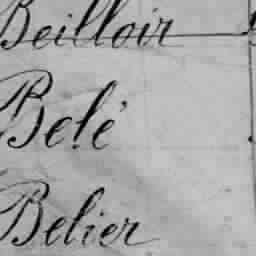 Beilloir
Belé
Belier